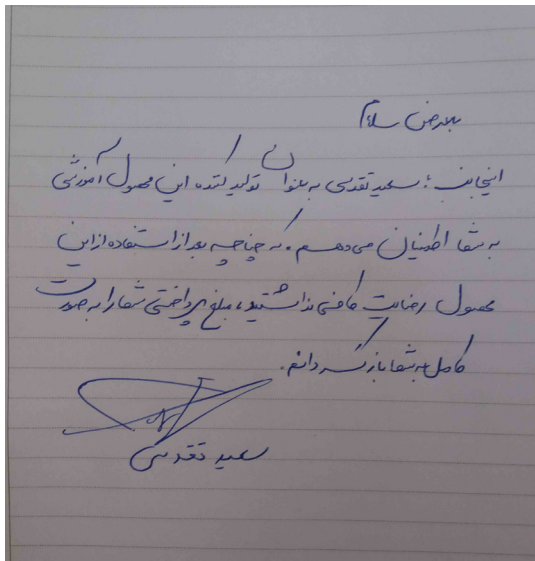 بعرض سلام
اینجانب: سعید تقدسی به عنوان تولید کننده این محصول آموزشی
به شما اطمینان می‌دهم، که چنانچه بعد از استفاده از این
محصول رضایت کافی نداشتید، مبلغ پرداختی شما را به صورت
کامل به شما بازگردانم.
سعید تقدسی